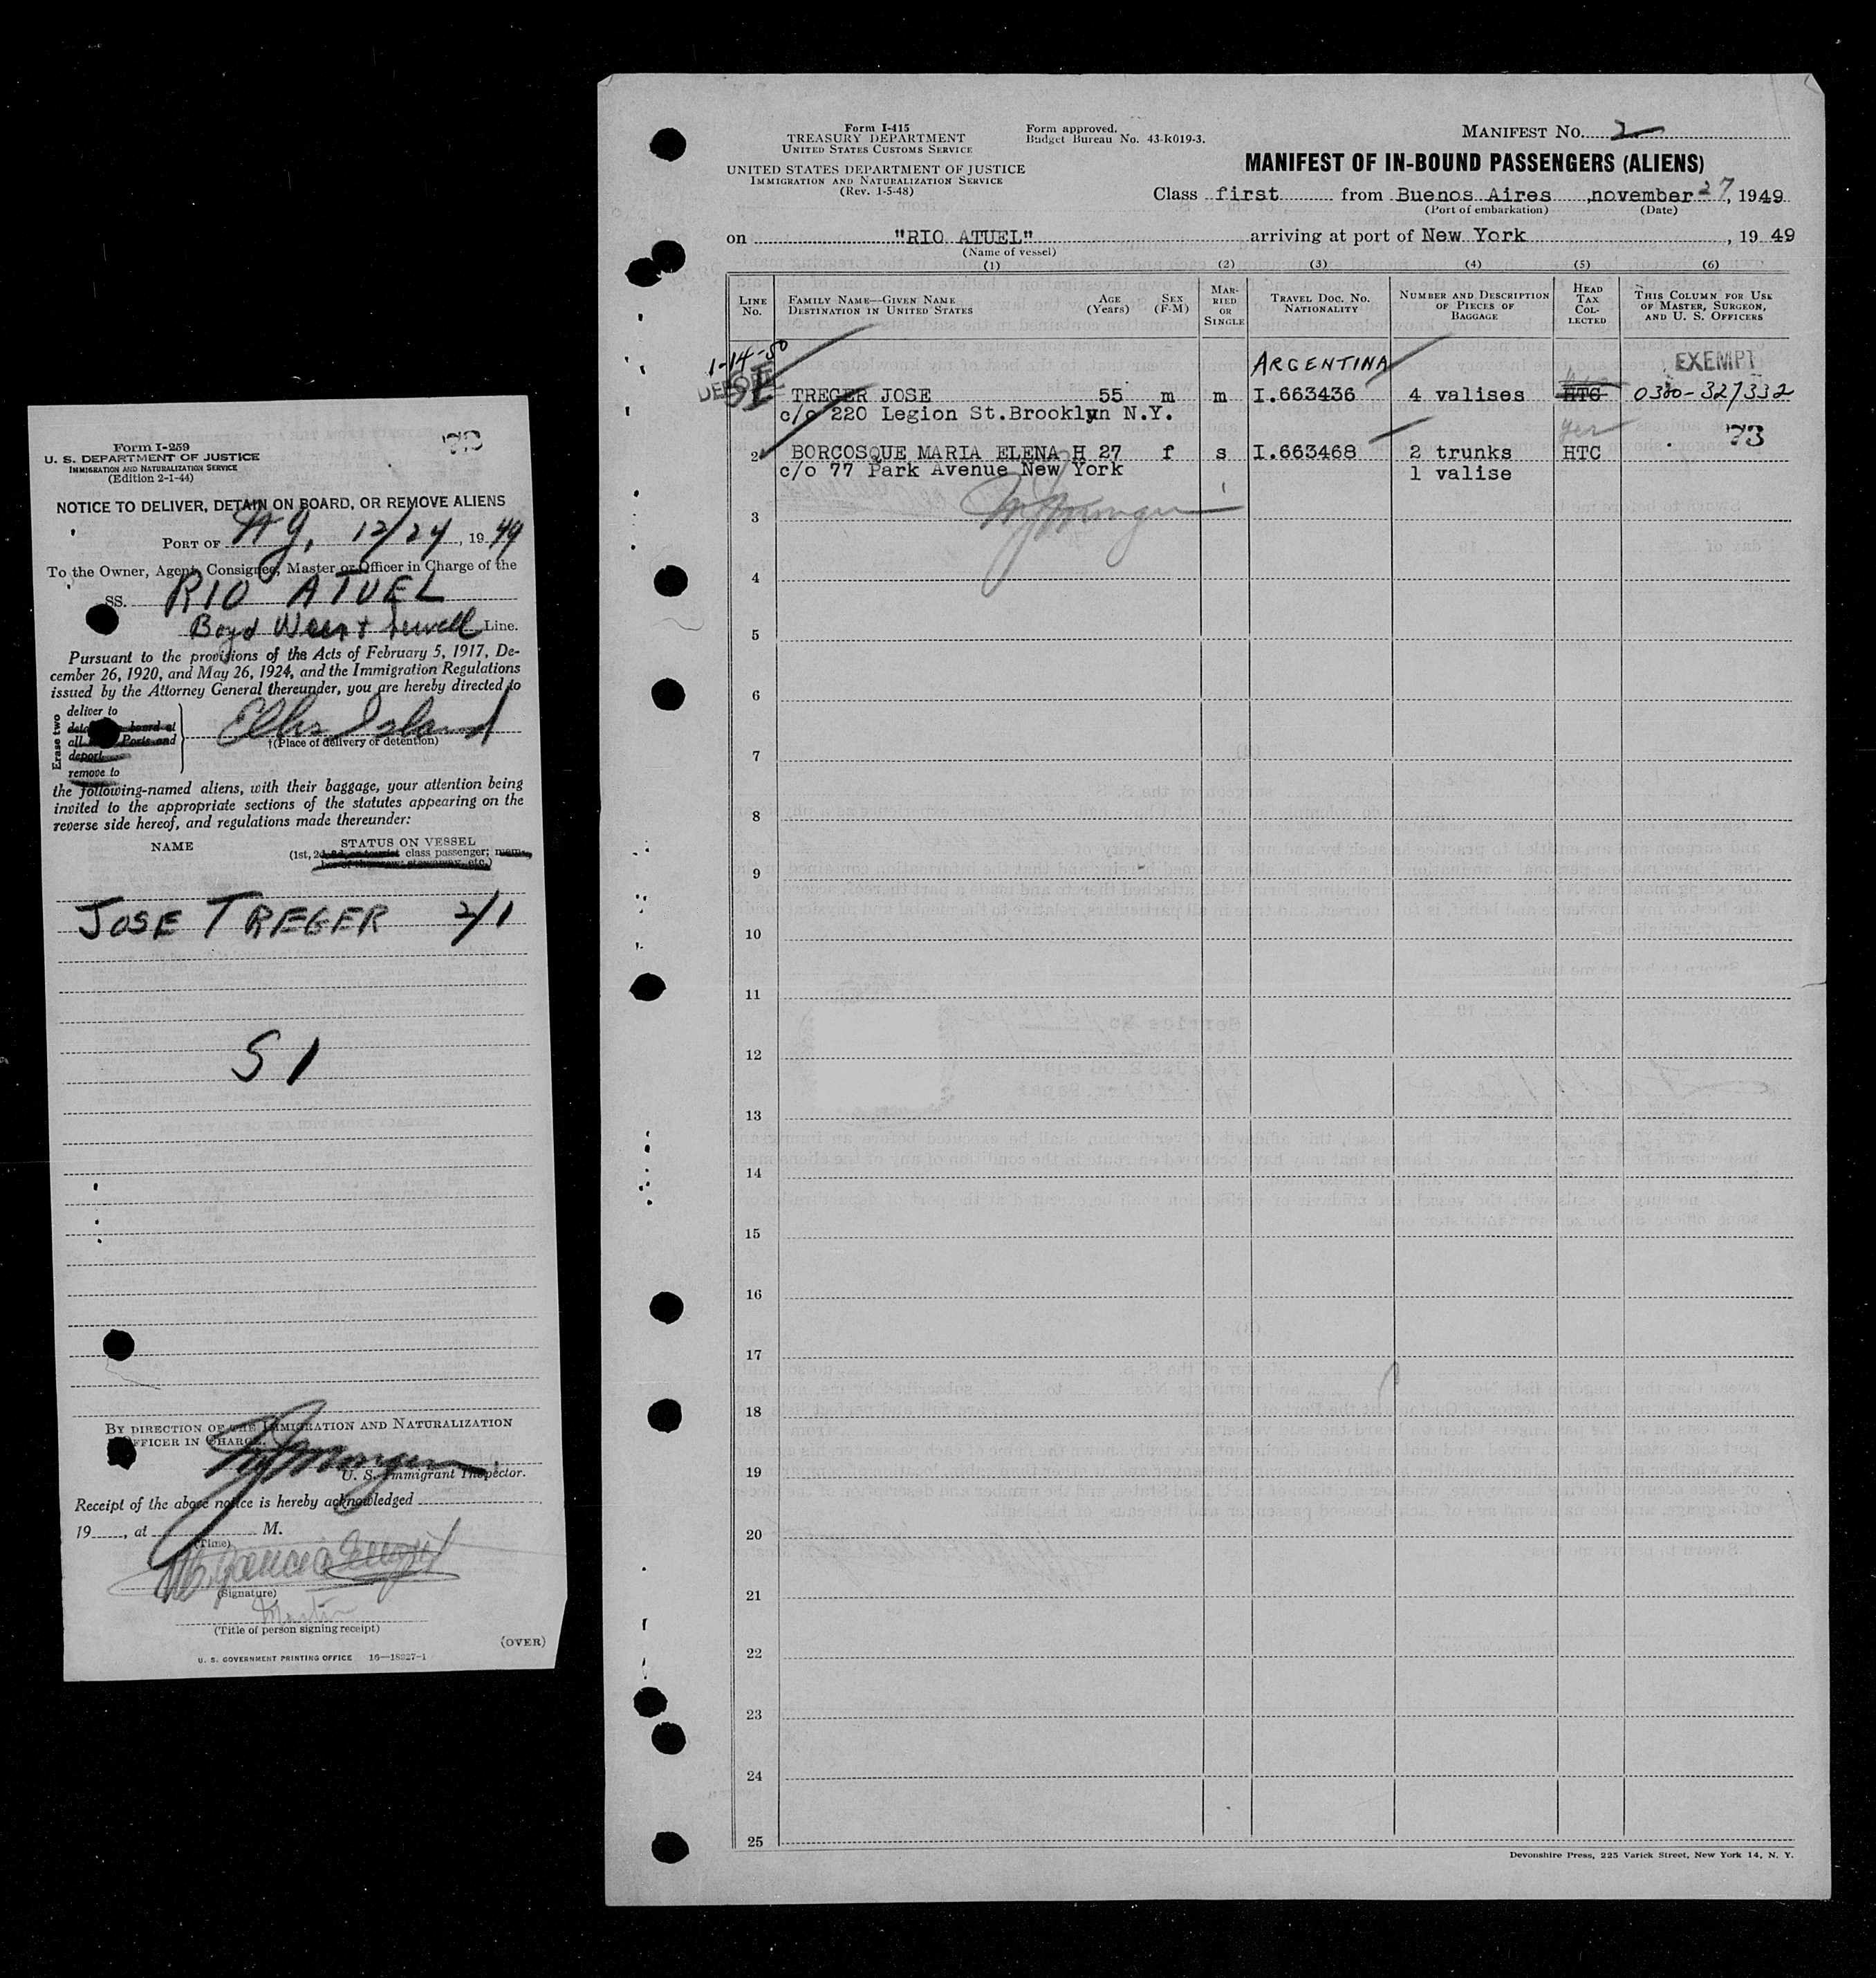 Form I-259
U. S. DEPARTMENT OF JUSTICE
IMMIGRATION AND NATURALIZATION SERVICE
(Edition 2-1-44)
NOTICE TO DELIVER, DETAIN ON BOARD, OR REMOVE ALIENS
PORT OF N Y, 12/24, 1949
To the Owner, Agent, Consignee, Master or Officer in Charge of the
SS. RIO ATUEL
Boyd Weir & Sewell Line.
Pursuant to the provisions of the Acts of February 5, 1917, De-
cember 26, 1920, and May 26, 1924, and the Immigration Regulations
issued by the Attorney General thereunder, you are hereby directed to
Erase two
deliver to
board at
all Ports and
deport
remove to
Ellis Island
†(Place of delivery or detention)
the following-named aliens, with their baggage, your attention being
invited to the appropriate sections of the statutes appearing on the
reverse side hereof, and regulations made thereunder:
NAME
STATUS ON VESSEL
(1st, 2d, 3d, or tourist class passenger; mem-
ber of the crew; stowaway, etc.)
JOSE TREGER 2/1
S I
BY DIRECTION OF THE IMMIGRATION AND NATURALIZATION
OFFICER IN CHARGE.
U. S. Immigrant Inspector.
Receipt of the above notice is hereby acknowledged
19 , at M.
(Time)
(Signature)
Master
(Title of person signing receipt)
(OVER)
U. S. GOVERNMENT PRINTING OFFICE 16—18227-1
Form I-415
TREASURY DEPARTMENT
UNITED STATES CUSTOMS SERVICE
UNITED STATES DEPARTMENT OF JUSTICE
IMMIGRATION AND NATURALIZATION SERVICE
(Rev. 1-5-48)
Form approved.
Budget Bureau No. 43-R019-3.
MANIFEST NO. 2
MANIFEST OF IN-BOUND PASSENGERS (ALIENS)
Class first from Buenos Aires, november 27, 1949
(Port of embarkation) (Date)
on "RIO ATUEL" arriving at port of New York, 1949
(Name of vessel)
(1) (2) (3) (4) (5) (6)
LINE NO.
FAMILY NAME—GIVEN NAME
DESTINATION IN UNITED STATES
AGE (Years)
SEX (F-M)
MARRIED OR SINGLE
TRAVEL DOC. NO.
NATIONALITY
NUMBER AND DESCRIPTION OF PIECES OF BAGGAGE
HEAD TAX COLLECTED
THIS COLUMN FOR USE OF MASTER, SURGEON, AND U. S. OFFICERS
1-14-50
ARGENTINA
EXEMPT
TREGER JOSE 55 m m I.663436 4 valises HTC 0300-327332
c/o 220 Legion St.Brooklyn N.Y.
yes 73
2 BORCOSQUE MARIA ELENA H 27 f s I.663468 2 trunks HTC
c/o 77 Park Avenue New York 1 valise
3
4
5
6
7
8
9
10
11
12
13
14
15
16
17
18
19
20
21
22
23
24
25
Devonshire Press, 225 Varick Street, New York 14, N. Y.